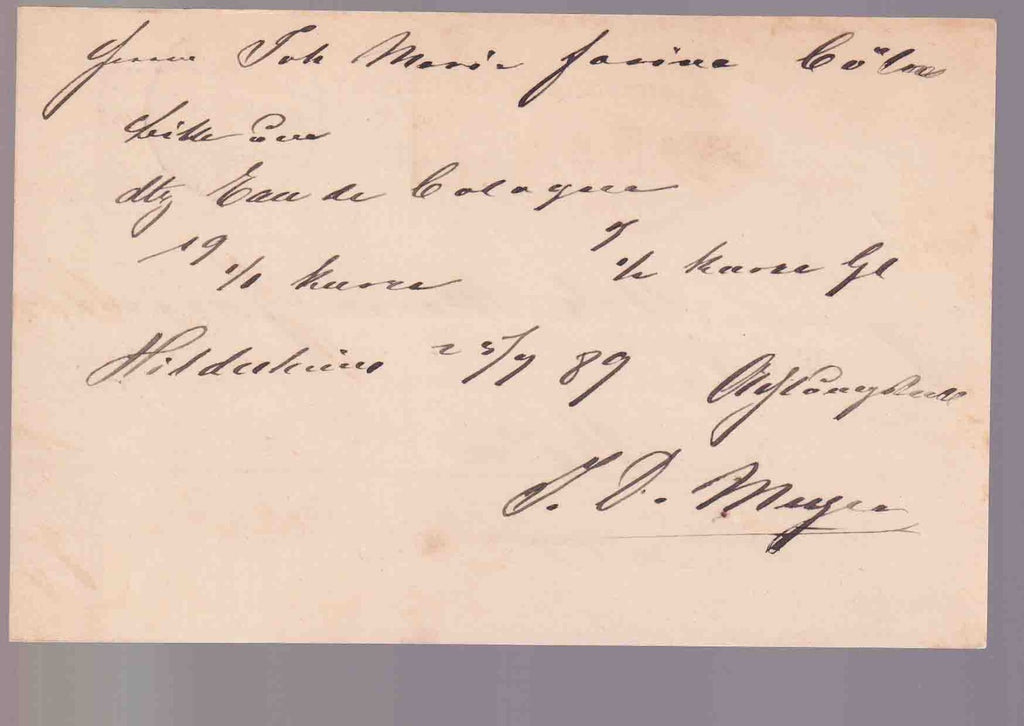 Herrn Joh Maria Farina Cöln
bitte um
dtz Eau de Cologne
1/1 kurze 1/2 kurze Gl
Hildesheim 25/7 89 Achtungsvoll
J. D. Meyer